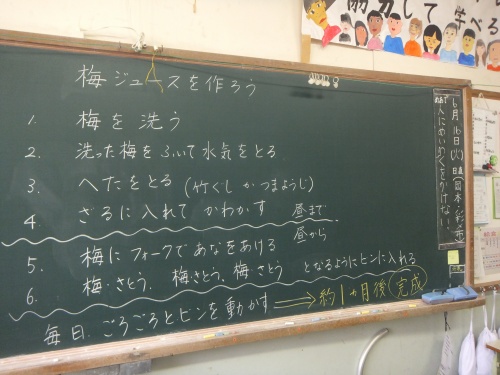 協力して 学べる
梅ジュースを作ろう
1. 梅を洗う
2. 洗った梅をふいて水気をとる
3. へたをとる (竹ぐしかつまようじ)
4. ざるに入れて かわかす 昼まで
昼から
5. 梅にフォークであなをあける
6. 梅・さとう、梅・さとう、梅・さとう となるようにビンに入れる
毎日、ごろごろとビンを動かす ⟹ 約1ヵ月後 完成
6月16日(火)
日直
人にめいわくをかけない。